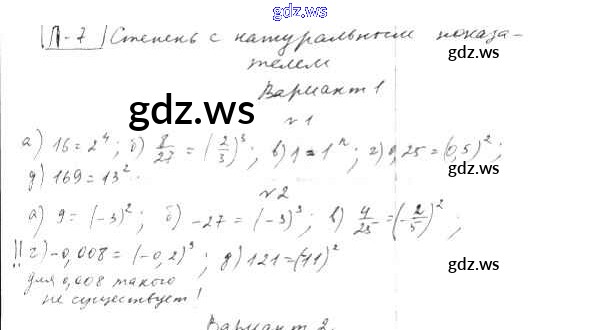 gdz.ws
П-7 Степень с натуральным показа-
gdz.ws
телем
Вариант 1
gdz.ws
№1
а) 16=2^4; б) 8/27 = (2/3)^3; в) 1=1^n; г) 0,25=(0,5)^2;
д) 169=13^2.
gdz.ws
№2
а) 9=(-3)^2; б) -27=(-3)^3; в) 4/25=(-2/5)^2;
!! г) -0,008=(-0,2)^3; д) 121=(-11)^2
gdz.ws
для 0,008 такого
не существует!
gdz.ws
Вариант 2.